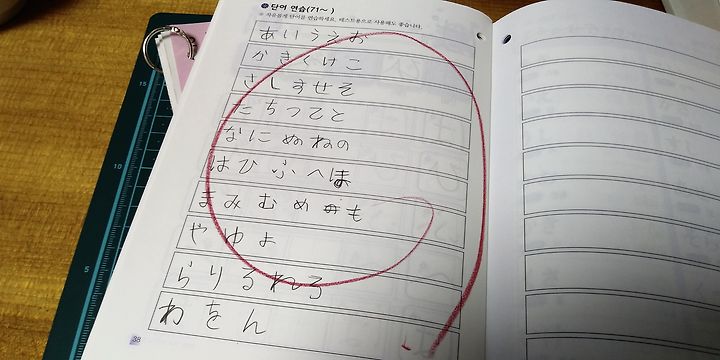 단어 연습(71~ )
※ 자유롭게 단어를 연습하세요. 테스트용으로 사용해도 좋습니다.
あいうえお
かきくけこ
さしすせそ
たちつてと
なにぬねの
はひふへほ
まみむめも
やゆよ
らりるれろ
わをん
38
15
10
5